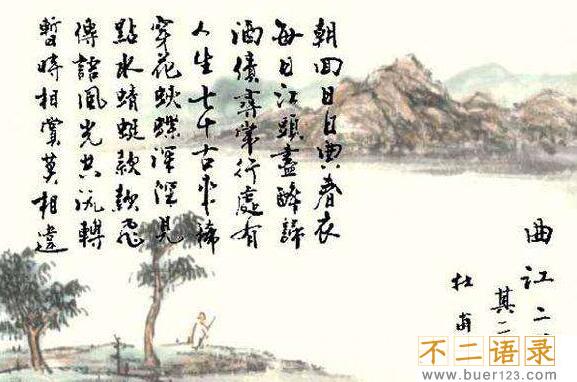 朝回日日典春衣
每日江頭盡醉歸
酒債尋常行處有
人生七十古來稀
穿花蛺蝶深深見
點水蜻蜓款款飛
傳語風光共流轉
暫時相賞莫相違
曲江二
其二
杜甫
不二语录
www.buer123.com